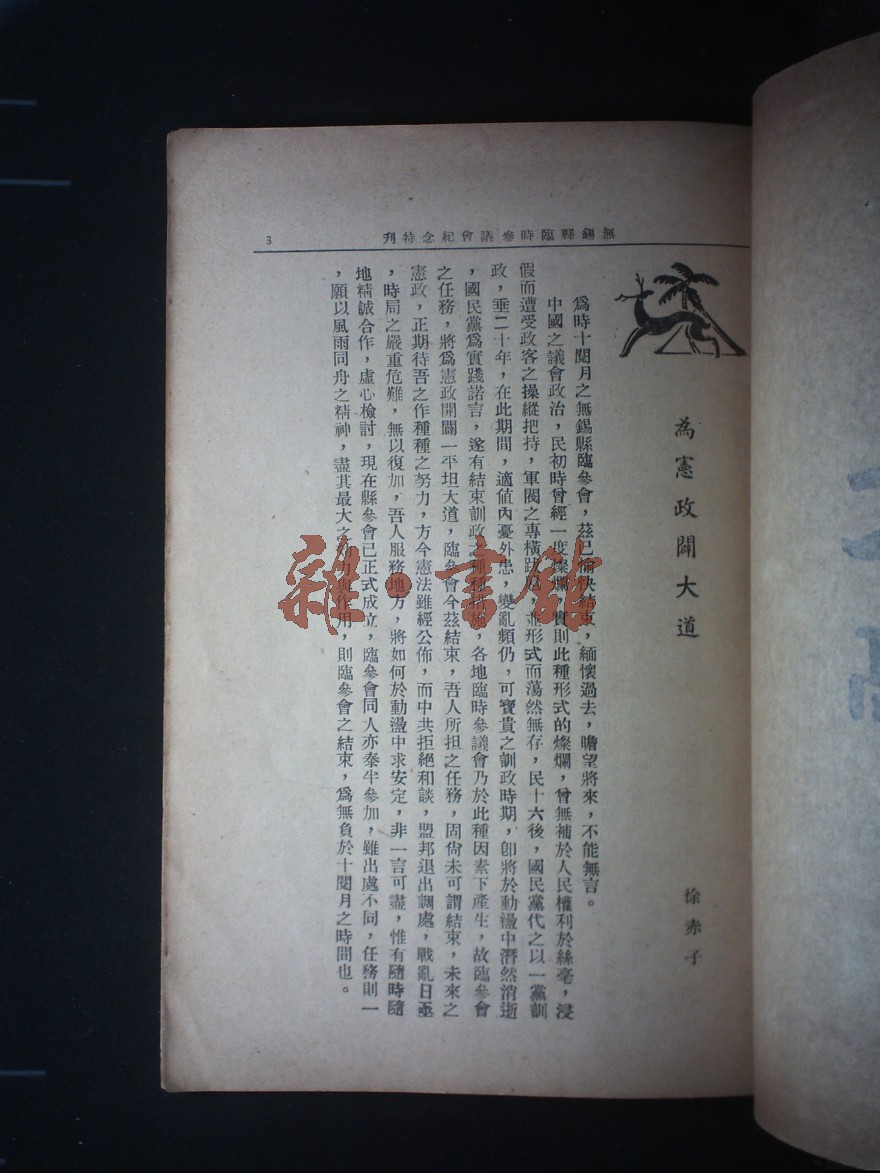 無錫縣臨時參議會紀念特刊
3
為憲政開大道
徐赤子
爲時十閱月之無錫縣臨參會，茲已愉快結束，緬懷過去，瞻望將來，不能無言。
中國之議會政治，民初時曾經一度燦爛，實則此種形式的燦爛，曾無補於人民權利於絲毫，浸
假而遭受政客之操縱把持，軍閥之專橫跋扈，並形式而蕩然無存，民十六後，國民黨代之以一黨訓
政，垂二十年，在此期間，適值內憂外患，變亂頻仍，可寶貴之訓政時期，卽將於動盪中潛然消逝
，國民黨爲實踐諾言，遂有結束訓政之種種措施，各地臨時參議會乃於此種因素下產生，故臨參會
之任務，將爲憲政開闢一平坦大道，臨參會今茲結束，吾人所担之任務，固尙未可謂結束，未來之
憲政，正期待吾之作種種之努力，方今憲法雖經公佈，而中共拒絕和談，盟邦退出調處，戰亂日亟
，時局之嚴重危難，無以復加，吾人服務地方，將如何於動盪中求安定，非一言可盡，惟有隨時隨
地精誠合作，虛心檢討，現在縣參會已正式成立，臨參會同人亦泰半參加，雖出處不同，任務則一
，願以風雨同舟之精神，盡其最大之努力與作用，則臨參會之結束，爲無負於十閱月之時間也。
雜·書館